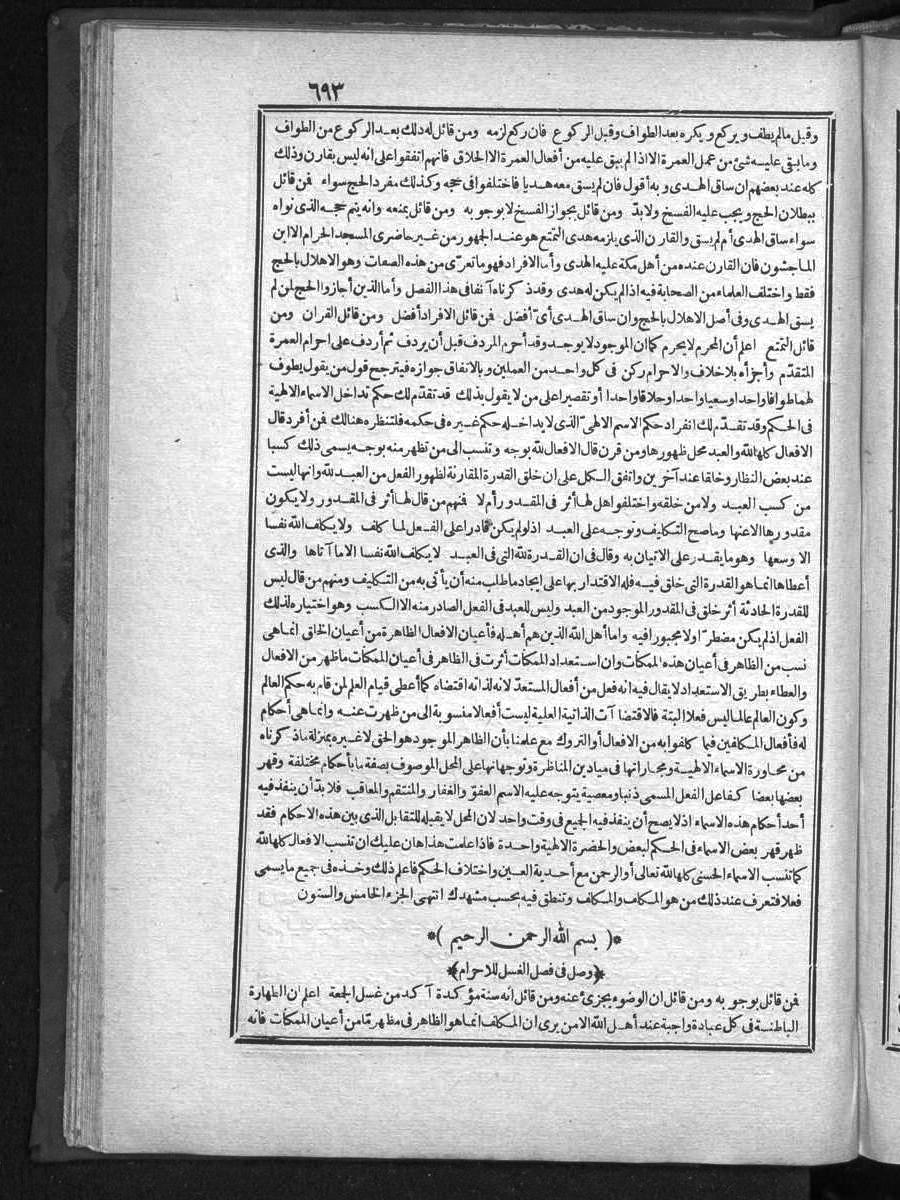 ٦٩٣
وقبل مالم يطف ويركع ويكره بعد الطواف وقبل الركوع فان ركع لزمه ومن قائل له ذلك بعد الركوع من الطواف
وما بقى عليه شئ من عمل العمرة الا اذا لم يبق عليه من أفعال العمرة الا الحلاق فانهم اتفقوا على انه ليس بقارن وذلك
كله عند بعضهم ان ساق الهدى وبه أقول فان لم يسق معه هديا فاختلفوا فى حجه وكذلك مفرد الحج سواء فن قائل
ببطلان الحج ويجب عليه الفسخ ولا بدّ ومن قائل بجواز الفسخ لا بوجوبه ومن قائل بمنعه وانه يتم حجه الذى نواه
سواء ساق الهدى أم لم يسق والقارن الذى يلزمه هدى التمتع هو عند الجمهور من غير حاضرى المسجد الحرام الا ابن
الماجشون فان القارن عنده من أهل مكة عليه الهدى وأما الافراد فهو ما تعرّى من هذه الصفات وهو الاهلال بالحج
فقط واختلف العلماء من الصحابة فيه اذا لم يكن له هدى وقد ذكرناه آنفا فى هذا الفصل وأما الذين أجازوا الحج لمن لم
يسق الهدى وفى أصل الاهلال بالحج وان ساق الهدى أىّ أفضل فن قائل الافراد أفضل ومن قائل القران ومن
قائل التمتع اعلم أن المحرم لا يحرم كما ان الموجود لا يوجد وقد أحرم المردف قبل أن يردف ثم أردف على احرام العمرة
المتقدّم وأجزأه بلا خلاف والاحرام ركن فى كل واحد من العملين وبالاتفاق جوازه فيترجح قول من يقول يطوف
لهما طوافا واحدا وسعيا واحدا وحلاقا واحدا أو تقصيرا على من لا يقول بذلك قد تقدّم لك حكم تداخل الاسماء الالهية
فى الحكم وقد تقدّم لك انفراد حكم الاسم الالهىّ الذى لا يداخله حكم غيره فى حكمه فلتنظره هنالك فن أفرد قال
الافعال كلها لله والعبد محل ظهورها ومن قرن قال الافعال لله بوجه وتنسب الى من تظهر منه بوجه يسمى ذلك كسبا
عند بعض النظار وخلقا عند آخرين واتفق الكل على ان خلق القدرة المقارنة لظهور الفعل من العبد لله وانها ليست
من كسب العبد ولا من خلقه واختلفوا هل لها أثر فى المقدور أم لا فنهم من قال لها أثر فى المقدور ولا يكون
مقدورها الا عنها وما صح التكليف وتوجه على العبد اذ لو لم يكن قادرا على الفعل لما كلف ولا يكلف الله نفسا
الا وسعها وهو ما يقدر على الاتيان به وقال فى ان القدرة لله التى فى العبد لا يكلف الله نفسا الا ما آتاها والذى
أعطاها انما هو القدرة التى خلق فيه فله الاقتدار بها على ايجاد ما طلب منه أن يأتى به من التكليف ومنهم من قال ليس
للقدرة الحادثة أثر خلق فى المقدور الموجود من العبد وليس للعبد فى الفعل الصادر منه الا الكسب وهو اختياره لذلك
الفعل اذ لم يكن مضطرّا ولا مجبورا فيه وأما أهل الله الذين هم أهله فأعيان الافعال الظاهرة من أعيان الخلق انما هى
نسب من الظاهر فى أعيان هذه الممكنات وان استعداد الممكنات أثرت فى الظاهر فى أعيان الممكنات ما ظهر من الافعال
والعطاء بطريق الاستعداد لا يقال فيه انه فعل من أفعال المستعدّ لانه لذاته اقتضاه كما أعطى قيام العلم لمن قام به حكم العالم
وكون العالم عالما ليس فعلا البتة فالاقتضا آت الذاتية العلية ليست أفعالا منسوبة الى من ظهرت عنه وانما هى أحكام
له فأفعال المكلفين فيما كلفوا به من الافعال أو التروك مع علمنا بأن الظاهر الموجود هو الحق لا غيره بمنزلة ما ذكرناه
من محاورة الاسماء الالهية ومجاراتها فى ميادين المناظرة وتوجهاتها على المحل الموصوف بصفة ما بأحكام مختلفة وقهر
بعضها بعضا كفاعل الفعل المسمى ذنبا ومعصية يتوجه عليه الاسم العفوّ والغفار والمنتقم والمعاقب فلا بدّ أن ينفذ فيه
أحد أحكام هذه الاسماء اذ لا يصح أن ينفذ فيه الجميع فى وقت واحد لان المحل لا يقبله للتقابل الذى بين هذه الاحكام فقد
ظهر قهر بعض الاسماء فى الحكم لبعض والحضرة الالهية واحدة فاذا علمت هذا هان عليك ان تنسب الافعال كلها لله
كما تنسب الاسماء الحسنى كلها لله تعالى أو الرحمن مع أحدية العين واختلاف الحكم فاعلم ذلك وخذه فى جميع ما يسمى
فعلا فتعرف عند ذلك من هو المكلف والمكلف وتنطق فيه بحسب مشهدك انتهى الجزء الخامس والستون
*( بسم الله الرحمن الرحيم )*
﴿وصل فى فصل الغسل للاحرام﴾
فن قائل بوجوبه ومن قائل ان الوضوء يجزئ عنه ومن قائل انه سنة مؤكدة آكد من غسل الجمعة اعلم ان الطهارة
الباطنة فى كل عبادة واجبة عند أهل الله الا من يرى ان المكلف انما هو الظاهر فى مظهر مّا من أعيان الممكنات فانه